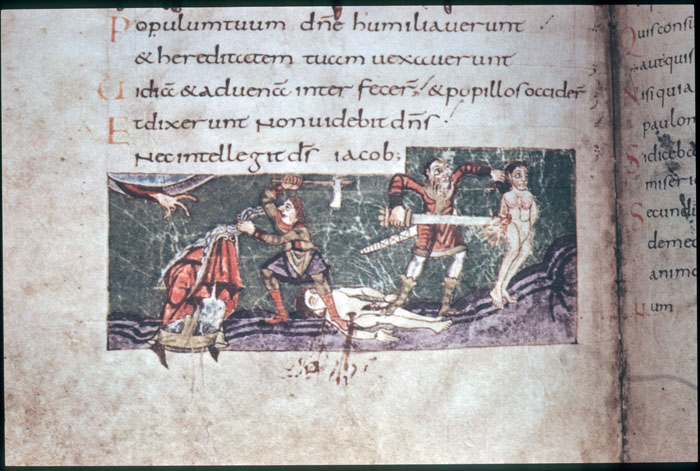 Populumtuum dne humiliauerunt
& hereditatem tuam uexauerunt
Uiduā & aduenā interfecer & pupillos occider
Et dixerunt Non uidebit dns
Nec intellegit ds iacob;
Quis consi
aut quis
Nisi quia
paulom
Si diceba
miseri
Secundu
deme
animo
Num